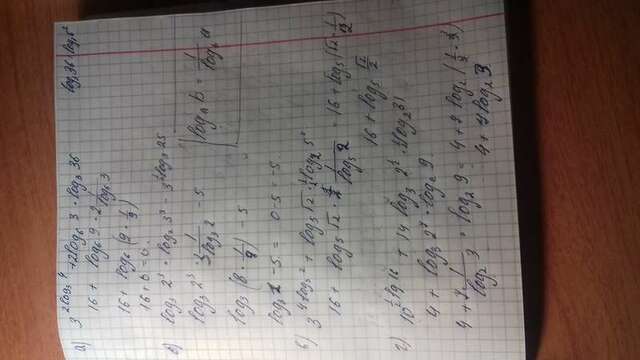 а) 3^{2log₃4} + 2log₆ 3 · log₃ 36
log₃36 = log₃6²
16 + log₆ 9 · 2 1/log₆3
16 + log₆ (9 · 1/9)
16 + 0 = 0.
log₃ 2³ · log₂ 3³ - 3^{½log₃25}
log₃ 2³ · 3 1/log₃2 - 5
log_a b = 1/log_b a
log₃ (8 · 1/9) - 5
log₃ 1 - 5 = 0 - 5 = -5.
в) 3^{4log₃2} + log₅ √2 · ½ log₂ 5²
16 + log₅ √2 · ½ 1/log₅2 = 16 + log₅ (√2 · 1/√2)
16 + log₅ √2/2
г) 10^{½lg16} + 14 log₃ 2^{½} · log₂ 31
4 + log₃ 2⁷ · log₂ 9
4 + 7 1/log₂3 · log₂ 9 = 4 + 7 log₂ (1/3 · 9)
4 + 7 log₂ 3